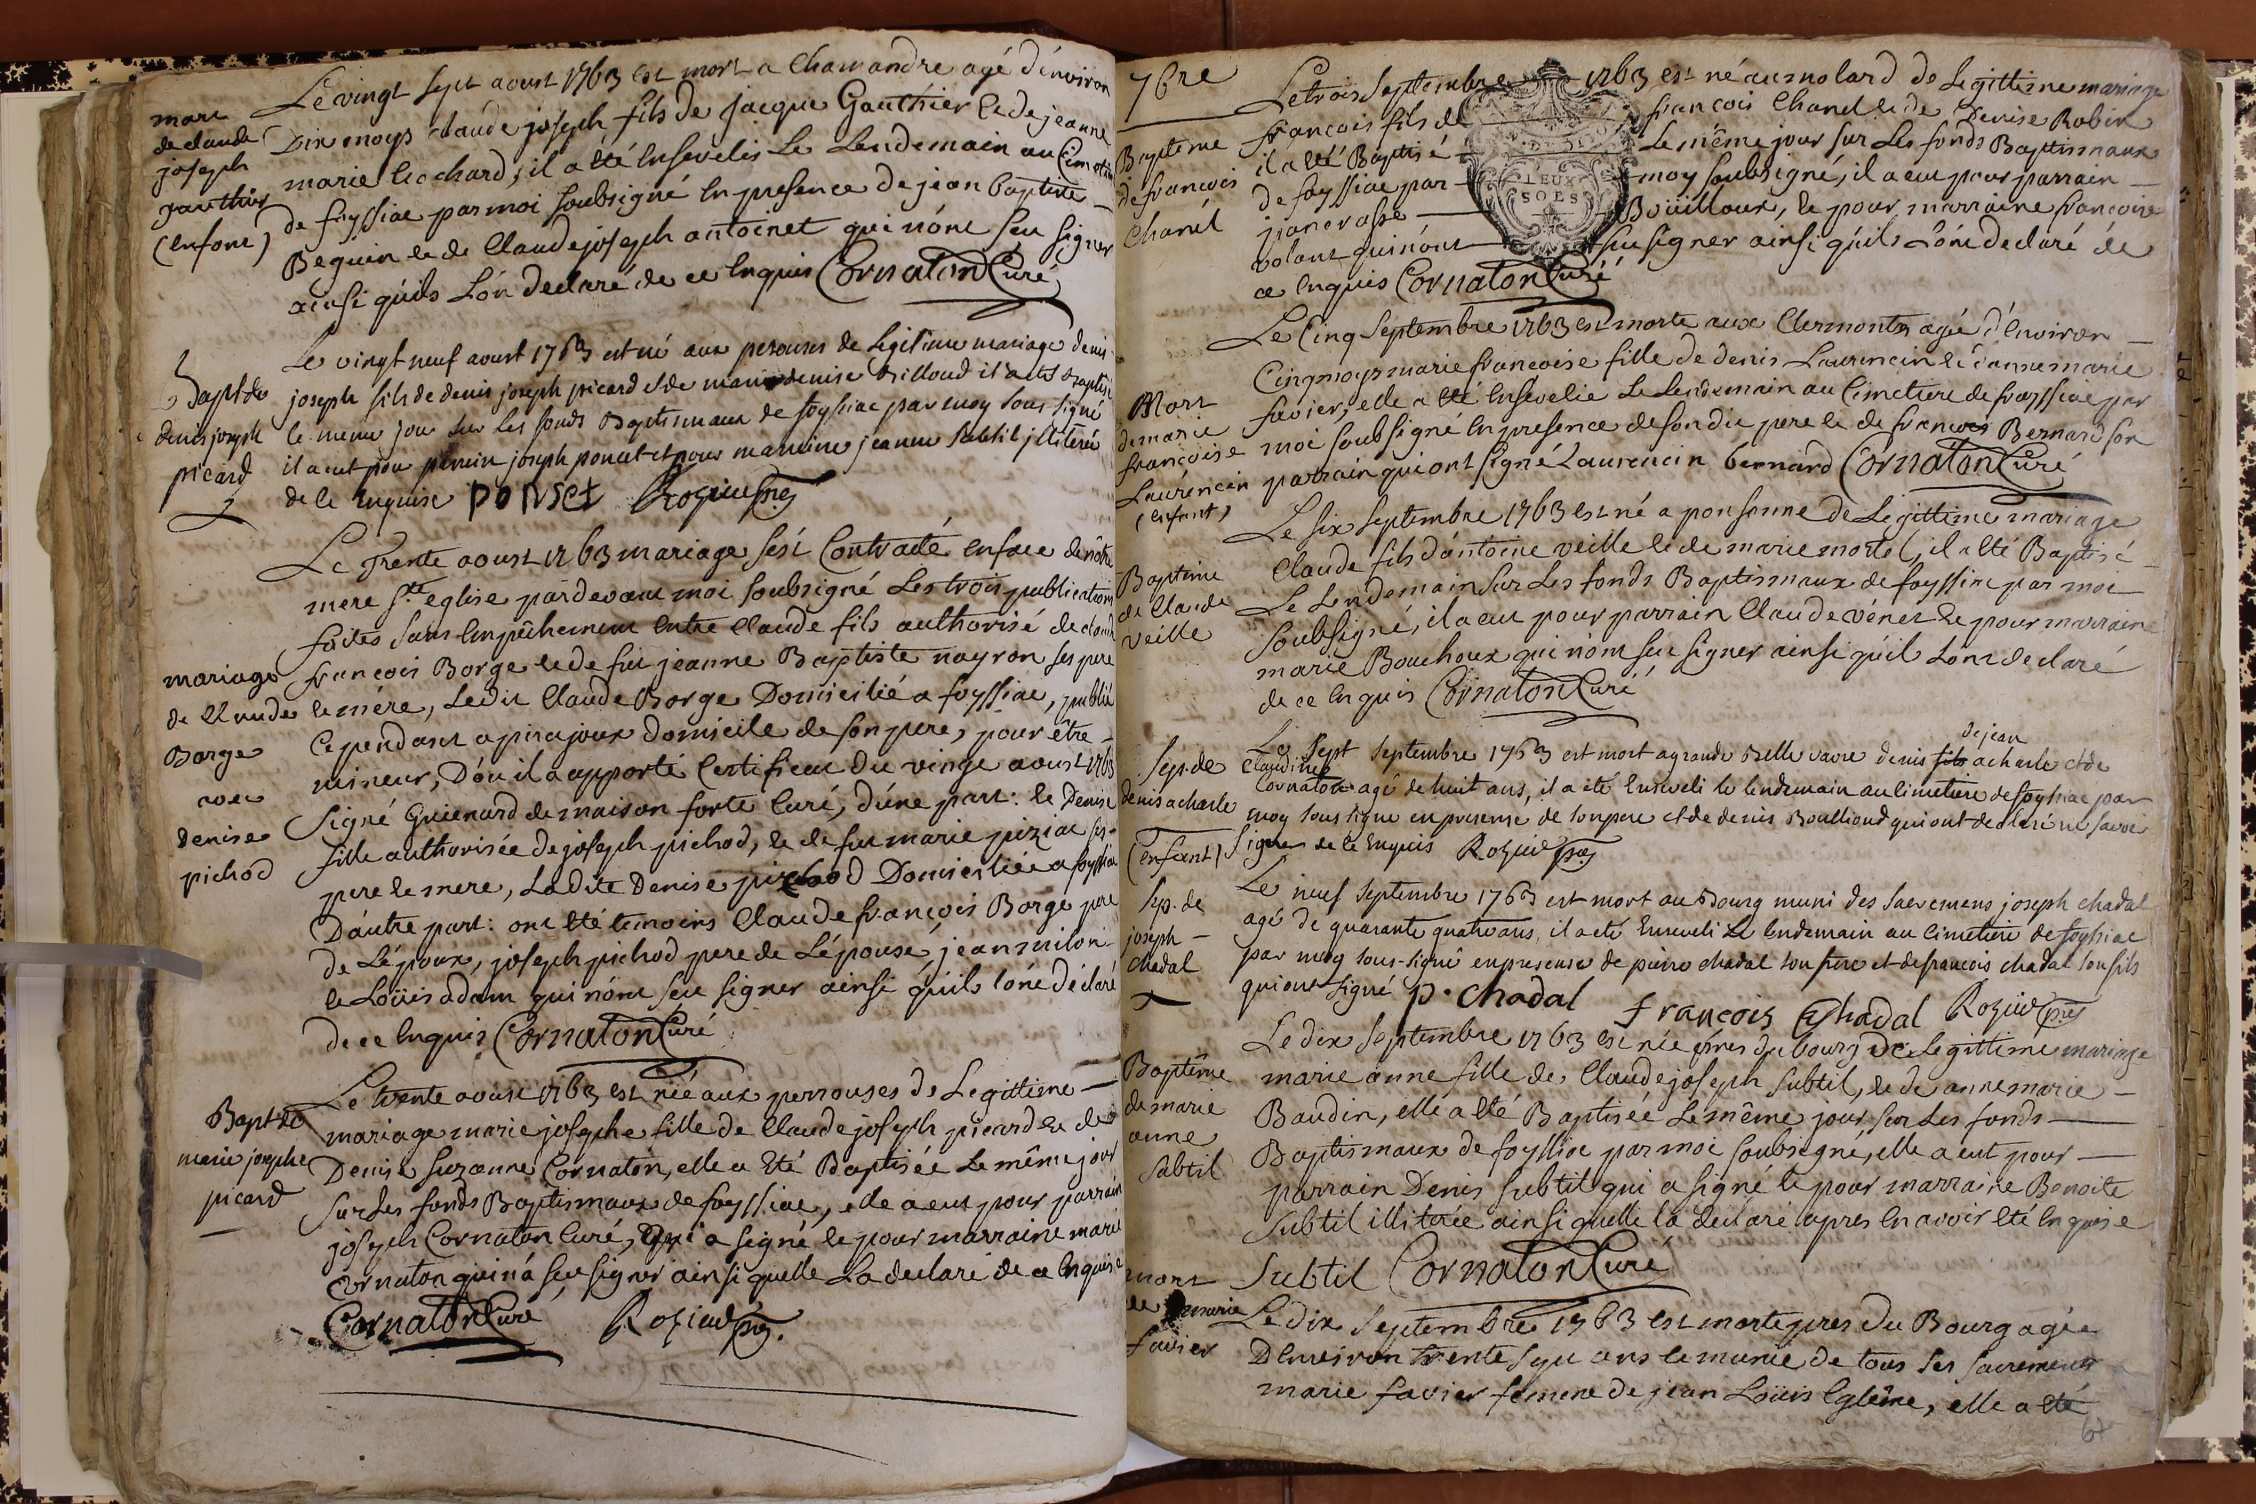 mort
de claude
joseph
gauthier
(enfant)
Le vingt sept aoust 1763 est mort a Chamandre agé d'énviron
Dix moys claude joseph fils de jacque Gauthier & de jeanne
marie bochard, il a été Ensevelis Le Lendemain au Cimetiere
de foyssiac par moi soubsigné En presence de jean baptiste
Beguin & de Claude joseph antoinet qui n'ont sçu signer
ainsi quils L'ón declaré de ce Enquis Cornaton Curé
Bapt de
denis joseph
picard
Le vingt neuf aoust 1763 est né aux perouses de Legitime mariage denis
joseph fils de denis joseph picard et de marie denise billoud il a été Baptisé
le meme jour sur les fonds Baptismaux de foyssiac par moy sous signé
il a eut pour parrein joseph poncet et pour marreine jeanne subtil illiterée
de ce Enquise PONSET Rozier ptre
mariage
de Claude
Borge
avec
denise
pichod
Le Trente aoust 1763 mariage s'est Contracté En face de nôtre
mere Ste eglise pardevant moi soubsigné Les trois publications
faites sans Empêchement Entre Claude fils authorisé de claude
francois Borge & de fue jeanne Baptiste nayron ses pere
& mére, Ledit Claude Borge Domicilié a foyssiac, publié
Cependant a pirajoux domicile de son pere, pour être
mineur, D'ou il a apporté Certificat du vingt aoust 1763
signé Guienard de maison forte Curé, d'une part: & Denise
fille authorisée de joseph pichod, & de fue marie piziac ses
pere & mere, Ladite Denise pichod Domiciliée a foyssiac
D'autre part: ont été temoins Claude françois Borge pere
de L'époux, joseph pichod pere de L'épouse, jean milon
& Loüis adam qui n'ont sçu signer ainsi quils l'ont déclaré
de ce Enquis Cornaton Curé
Bapt de
marie josephe
picard
Le trente aoust 1763 est née aux perrouses de Legittime
mariage marie josephe fille de Claude joseph picard & de
Denise suzanne Cornaton, elle a été Baptisée Le même jour
sur Les fonds Baptismaux de foyssiac, elle a eut pour parrain
joseph Cornaton Curé, Qui a signé & pour marraine marie
Cornaton qui n'a sçu signer ainsi quelle La declaré de ce Enquise
Cornaton Curé Rozier ptre.
7bre
Baptême
de francois
Chanel
Le trois septembre 1763 est né au molard de Legittime mariage
francois fils de françois Chanel & de Denise Robin
il a été Baptisé Le même jour sur Les fonds Baptismaux
de foyssiac par moy soubsigné, il a eut pour parrain
Boüilloux, & pour marraine francoise
volant qui n'ont sçu signer ainsi quils L'ónt declaré de
ce Enquis Cornaton Curé
DEUX
SOLS
Mort
de marie
françoise
Laurencin
(enfant)
Le Cinq septembre 1763 est morte aux Clermonts agée d'Environ
Cinq moys marie francoise fille de denis Laurencin & d'anne marie
favier, elle a été Ensevelie Le Lendemain au Cimetiere de foyssiac par
moi soubsigné En presence de son dit pere & de francois Bernard son
parrain qui ont signé Laurencin bernard Cornaton Curé
Baptême
de Claude
veille
Le six septembre 1763 est né a ponsonne de Legittime mariage
Claude fils d'antoine veille & de marie morel, il a été Baptisé
Le Lendemain sur Les fonds Baptismaux de foyssiac par moi
soubsigné, il a eut pour parrain Claude vénet & pour marraine
marie Bouchoux qui n'ont sçu signer ainsi qu'il L'ont declaré
de ce Enquis Cornaton Curé
Sep. de
denis acharle
(enfant)
de jean
Le sept septembre 1763 est mort a grande Belle vavre denis fils acharle et de
Claudine
Cornaton agé de huit ans, il a eté Enseveli le lendemain au Cimetiere de foyssiac par
moy sous signé en presense de son pere et de denis Boulliond qui ont declaré ne savoir
signer de ce Enquis Rozier ptre
Sep. de
joseph
chadal
Le neuf septembre 1763 est mort au Bourg muni des sacremens joseph chadal
agé de quarante quatre ans, il a eté Enseveli Le lendemain au Cimetiere de foyssiac
par moy sous-signé en presense de pierre chadal son frere et de francois chadal son fils
qui ont signé p. chadal françois Chadal Rozier ptre
Baptême
de marie
anne
subtil
Le dix septembre 1763 est née prés du bourg de Legittime mariage
marie anne fille de Claude joseph subtil, & de anne marie
Baudin, elle a été Baptisée Le même jour sur Les fonds
Baptismaux de foyssiac par moi soubsigné, elle a eut pour
parrain Denis subtil qui a signé & pour marraine Benoite
subtil illiterée ainsi quelle la declaré apres En avoir été Enquise
Subtil Cornaton Curé
mort
de marie
favier
Le dix septembre 1763 est morte pres du Bourg agée
D'Environ trente sept ans & munie de tous ses sacrements
marie favier femme de jean Loüis Eglême, elle a été